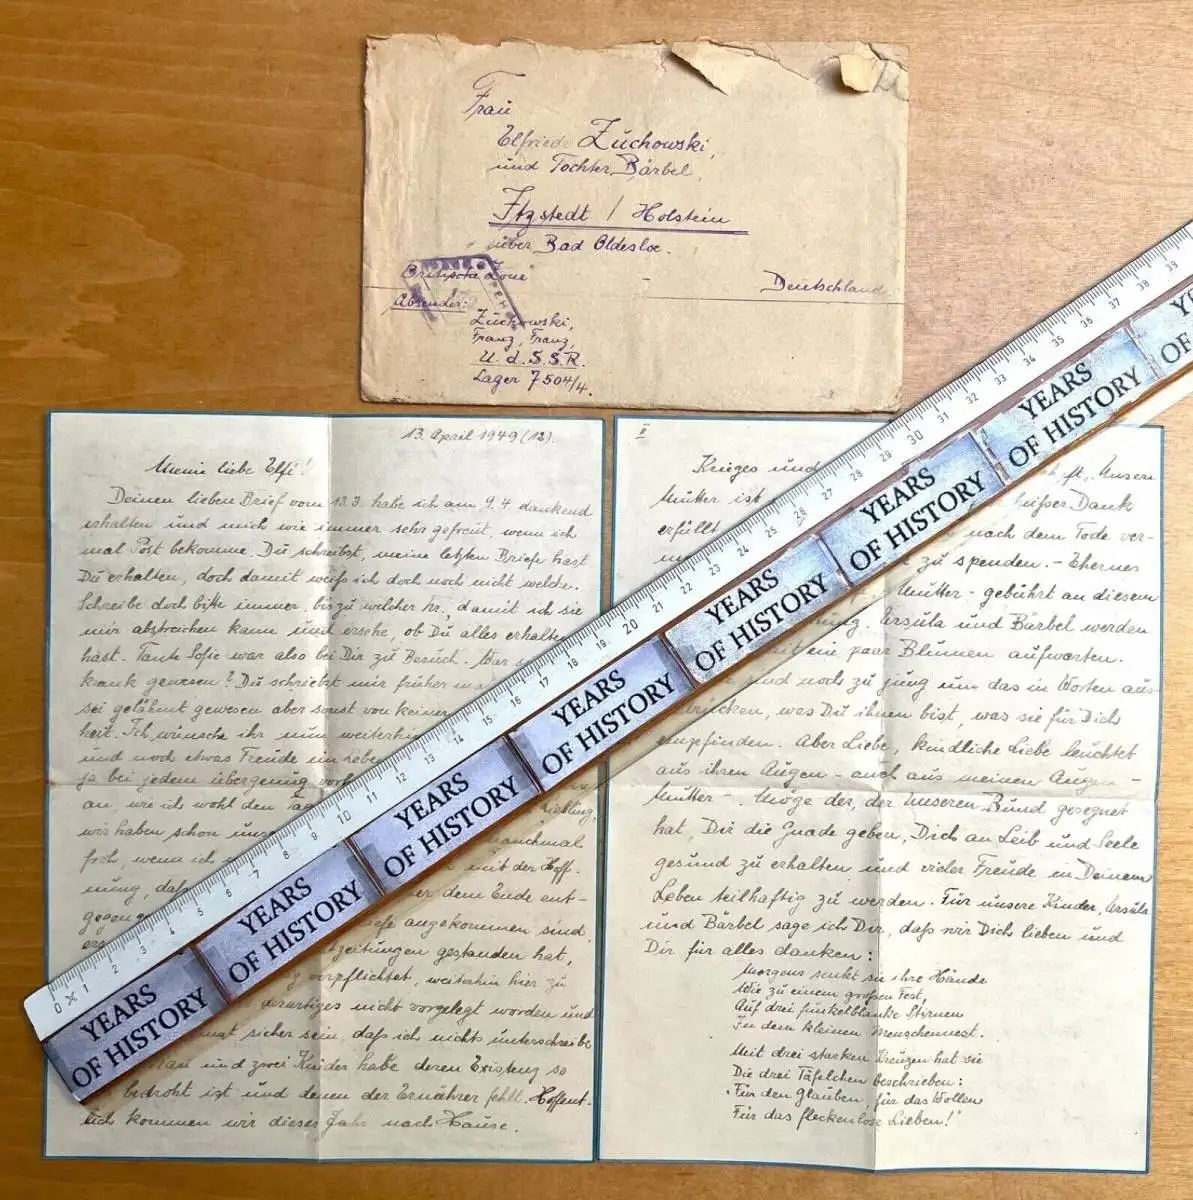 Frau
Elfriede Zuchowski,
und Tochter Bärbel,
Itzstedt / Holstein
über Bad Oldesloe.
Britische Zone
Deutschland
Absender:
Zuchowski,
Franz, Franz,
U.d.S.S.R.
Lager 7504/4.
13. April 1949 (12).
Meine liebe Elfi!
Deinen lieben Brief vom 13.3. habe ich am 9.4. dankend
erhalten und mich wie immer sehr gefreut, wenn ich
mal Post bekomme. Du schreibst, meine letzten Briefe hast
Du erhalten, doch damit weiß ich doch noch nicht welche.
Schreibe doch bitte immer, bis zu welcher Nr., damit ich sie
mir abstreichen kann und ersehe, ob Du alles erhalten
hast. Tante Sofie war also bei Dir zu Besuch. War
krank gewesen? Du schriebst mir früher
sei gelähmt gewesen aber sonst von keiner
heit. Ich wünsche ihr nun weiterhin
und noch etwas Freude im Leben
ja bei jedem übergenug
an, wie ich wohl den Tag Liebling,
wir haben schon manchmal
froh, wenn ich mit der Hoff-
nung, daß dem Ende ent-
gegen angekommen sind,
gestanden hat,
verpflichtet, weiterhin hier zu
derartiges nicht vorgelegt worden und
sicher sein, daß ich nichts unterschreibe
und zwei Kinder habe deren Existenz so
bedroht ist und denen der Ernährer fehlt. Hoffent-
lich kommen wir dieses Jahr nach Hause.
II
Krieges und Unsern
Mutter ist heißer Dank
erfüllt nach dem Tode ver-
zu spenden. - Ehernes
Mutter - gebührt an diesem
Ursula und Bärbel werden
mit ein paar Blumen aufwarten.
sind noch zu jung um das in Worten aus-
zudrücken, was Du ihnen bist, was sie für Dich
empfinden. Aber Liebe, kindliche Liebe leuchtet
aus ihren Augen - auch aus meinen Augen -
Mutter -. Möge der, der unseren Bund gesegnet
hat, Dir die Gnade geben, Dich an Leib und Seele
gesund zu erhalten und vieler Freude in Deinem
Leben teilhaftig zu werden. Für unsere Kinder, Ursula
und Bärbel sage ich Dir, daß wir Dich lieben und
Dir für alles danken:
Morgens senkt sie ihre Hände
Wie zu einem großen Fest,
Auf drei funkelblanke Stirnen
In dem kleinen Menschennest.
Mit drei starken Kreuzen hat sie
Die drei Täfelchen beschrieben:
Für den Glauben, für das Wollen
Für das fleckenlose Lieben!
0 1 2 3 4 5 6 7 8 9 10 11 12 13 14 15 16 17 18 19 20 21 22 23 24 25 26 27 28 29 30 31 32 33 34 35 36 37 38 39
YEARS
OF HISTORY
YEARS
OF HISTORY
YEARS
OF HISTORY
YEARS
OF HISTORY
YEARS
OF HISTORY
YEARS
OF HISTORY
YEARS
OF HISTORY